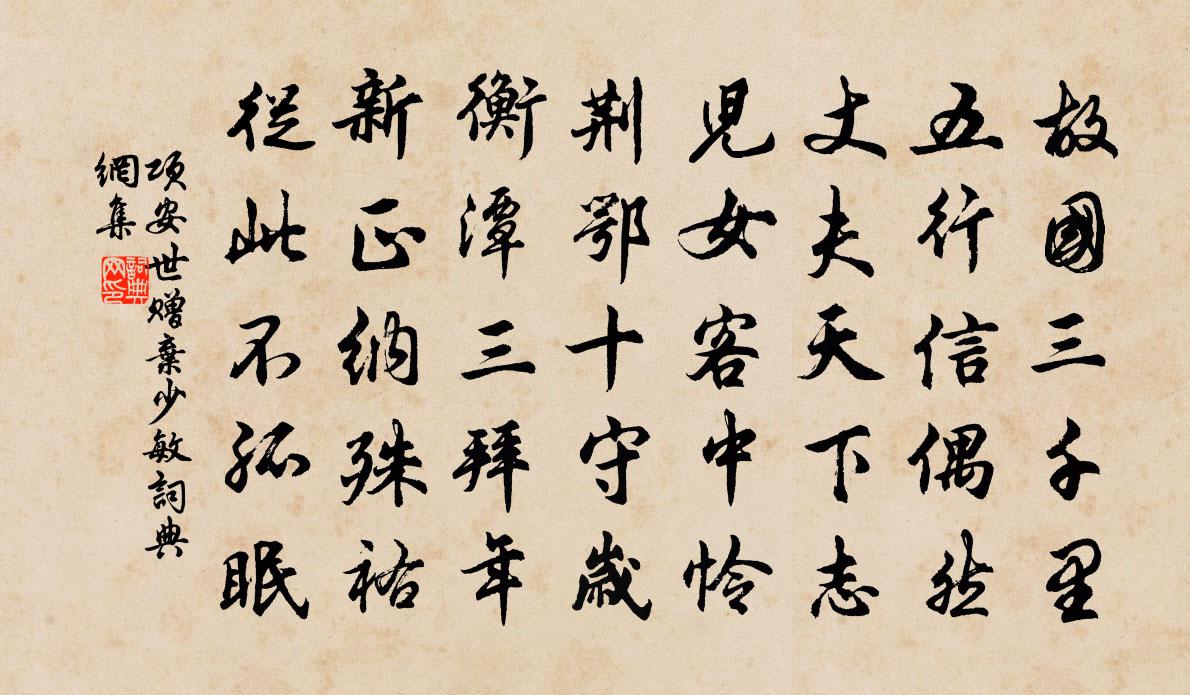 故國三千里
五行信偶然
丈夫天下志
兒女客中憐
荆鄂十守歲
衡潭三拜年
新正納殊祐
從此不孤眠
項安世贈棄少敏詞典
網集
詞典
网印